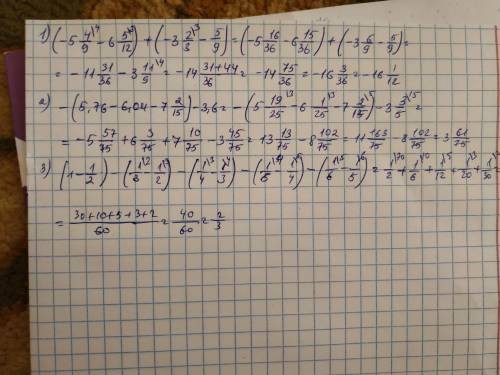 1) (-5 4/9 - 6 5/12) + (-3 2/3 - 5/9) = (-5 16/36 - 6 15/36) + (-3 6/9 - 5/9) =
= -11 31/36 - 3 11/9 = -14 31+44/36 = -14 75/36 = -16 3/36 = -16 1/12
2) -(5,76 - 6,04 - 7 2/15) - 3,6 = -(5 19/25 - 6 1/25 - 7 2/15) - 3 3/5 =
= -5 57/75 + 6 3/75 + 7 10/75 - 3 45/75 = 13 13/75 - 8 102/75 = 11 163/75 - 8 102/75 = 3 61/75
3) (1 - 1/2) - (1/3 - 1/2) - (1/4 - 1/3) - (1/5 - 1/4) - (1/6 - 1/5) = 1/2 + 1/6 + 1/12 + 1/20 + 1/30 =
= 30+10+5+3+2/60 = 40/60 = 2/3